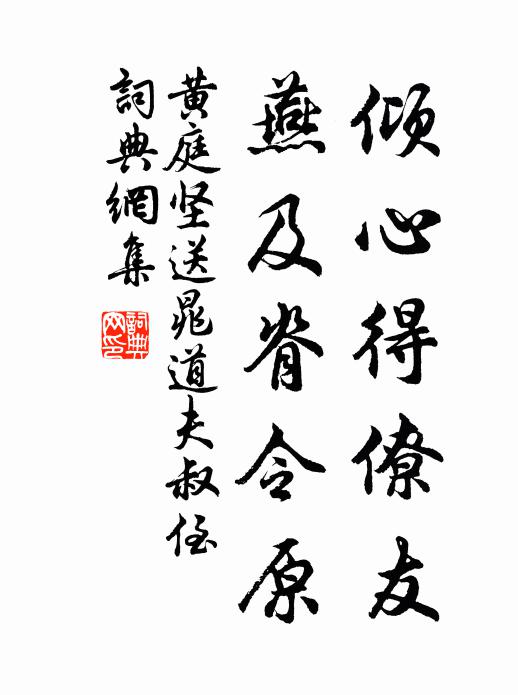 傾心得僚友
燕及脊令原
黄庭坚送晁道夫叔侄
詞典網集
詞典網印